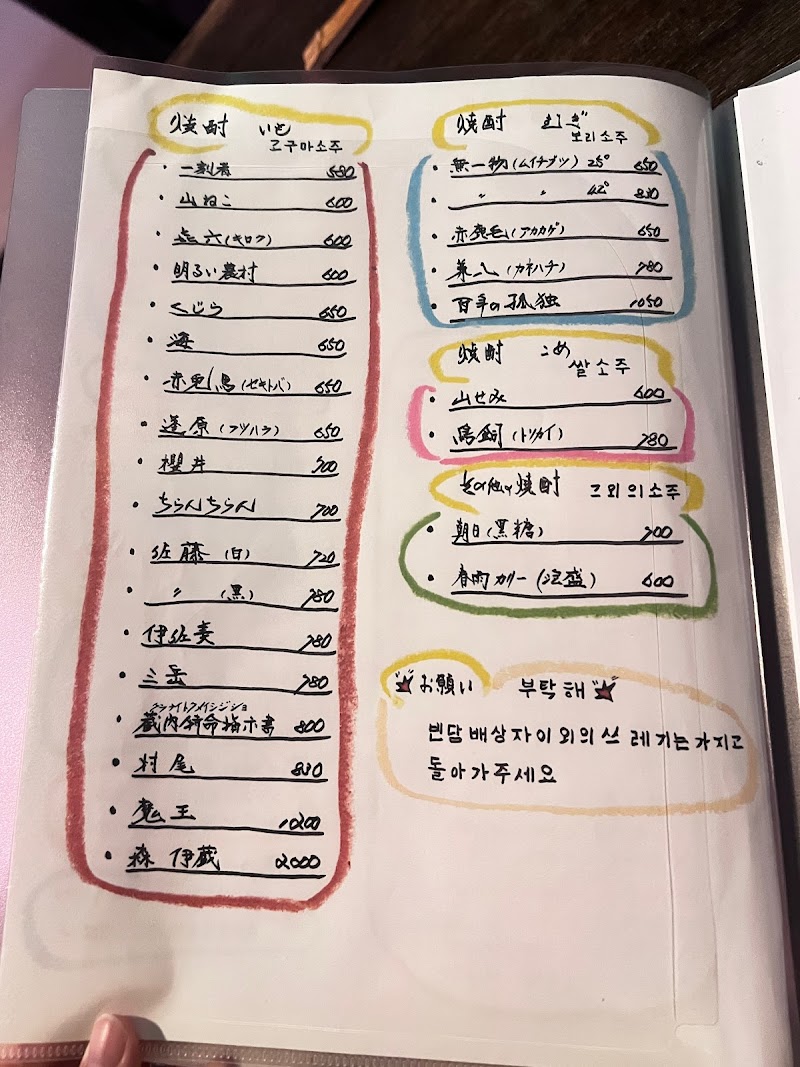 焼酎 いも
고구마소주
・一刻者 580
・山ねこ 600
・㐂六(キロク) 600
・明るい農村 600
・くじら 650
・海 650
・赤兎馬(セキトバ) 650
・逢原(フツハラ) 650
・櫻井 700
・ちらんちらん 700
・佐藤(白) 720
・〃(黒) 780
・伊佐美 780
・三岳 780
・蔵内 800
・村尾 830
・魔王 1200
・森伊蔵 2000
焼酎 むぎ
보리소주
・無一物(ムイチブツ) 25° 650
・〃 〃 42° 830
・赤鹿毛(アカカゲ) 650
・兼八(カネハチ) 780
・百年の孤独 1050
焼酎 こめ
쌀소주
・山せみ 600
・鳥飼(トリカイ) 780
その他の焼酎 그외의소주
・朝日(黒糖) 700
・春雨カリー(泡盛) 600
お願い 부탁해
빈담배상자이외의쓰레기는가지고
돌아가주세요